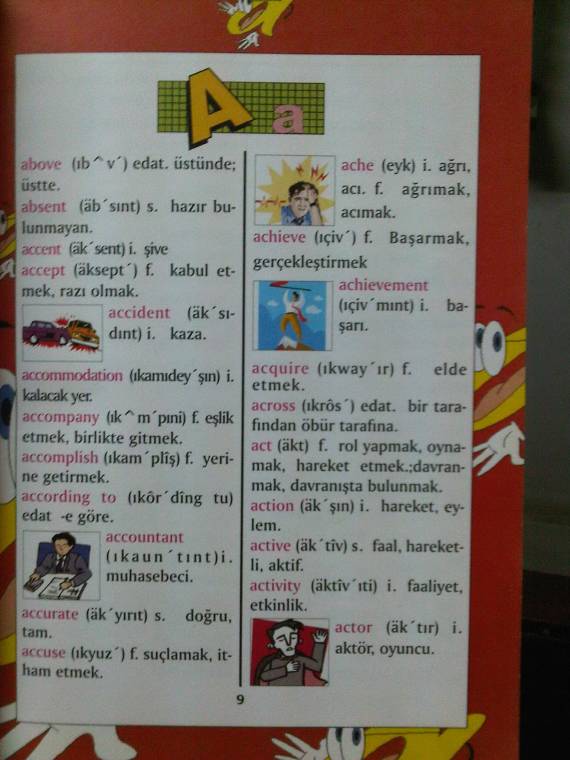 A a
above (ıb^v´) edat. üstünde;
üstte.
absent (äb´sınt) s. hazır bu-
lunmayan.
accent (äk´sent) i. şive
accept (äksept´) f. kabul et-
mek, razı olmak.
accident (äk´sı-
dınt) i. kaza.
accommodation (ıkamıdey´şın) i.
kalacak yer.
accompany (ık^m´pıni) f. eşlik
etmek, birlikte gitmek.
accomplish (ıkam´plîş) f. yeri-
ne getirmek.
according to (ıkôr´dîng tu)
edat -e göre.
accountant
(ıkaun´tınt) i.
muhasebeci.
accurate (äk´yırıt) s. doğru,
tam.
accuse (ıkyuz´) f. suçlamak, it-
ham etmek.
ache (eyk) i. ağrı,
acı. f. ağrımak,
acımak.
achieve (ıçiv´) f. Başarmak,
gerçekleştirmek
achievement
(ıçiv´mınt) i. ba-
şarı.
acquire (ıkway´ır) f. elde
etmek.
across (ıkrôs´) edat. bir tara-
fından öbür tarafına.
act (äkt) f. rol yapmak, oyna-
mak, hareket etmek.;davran-
mak, davranışta bulunmak.
action (äk´şın) i. hareket, ey-
lem.
active (äk´tîv) s. faal, hareket-
li, aktif.
activity (äktîv´ıti) i. faaliyet,
etkinlik.
actor (äk´tır) i.
aktör, oyuncu.
9